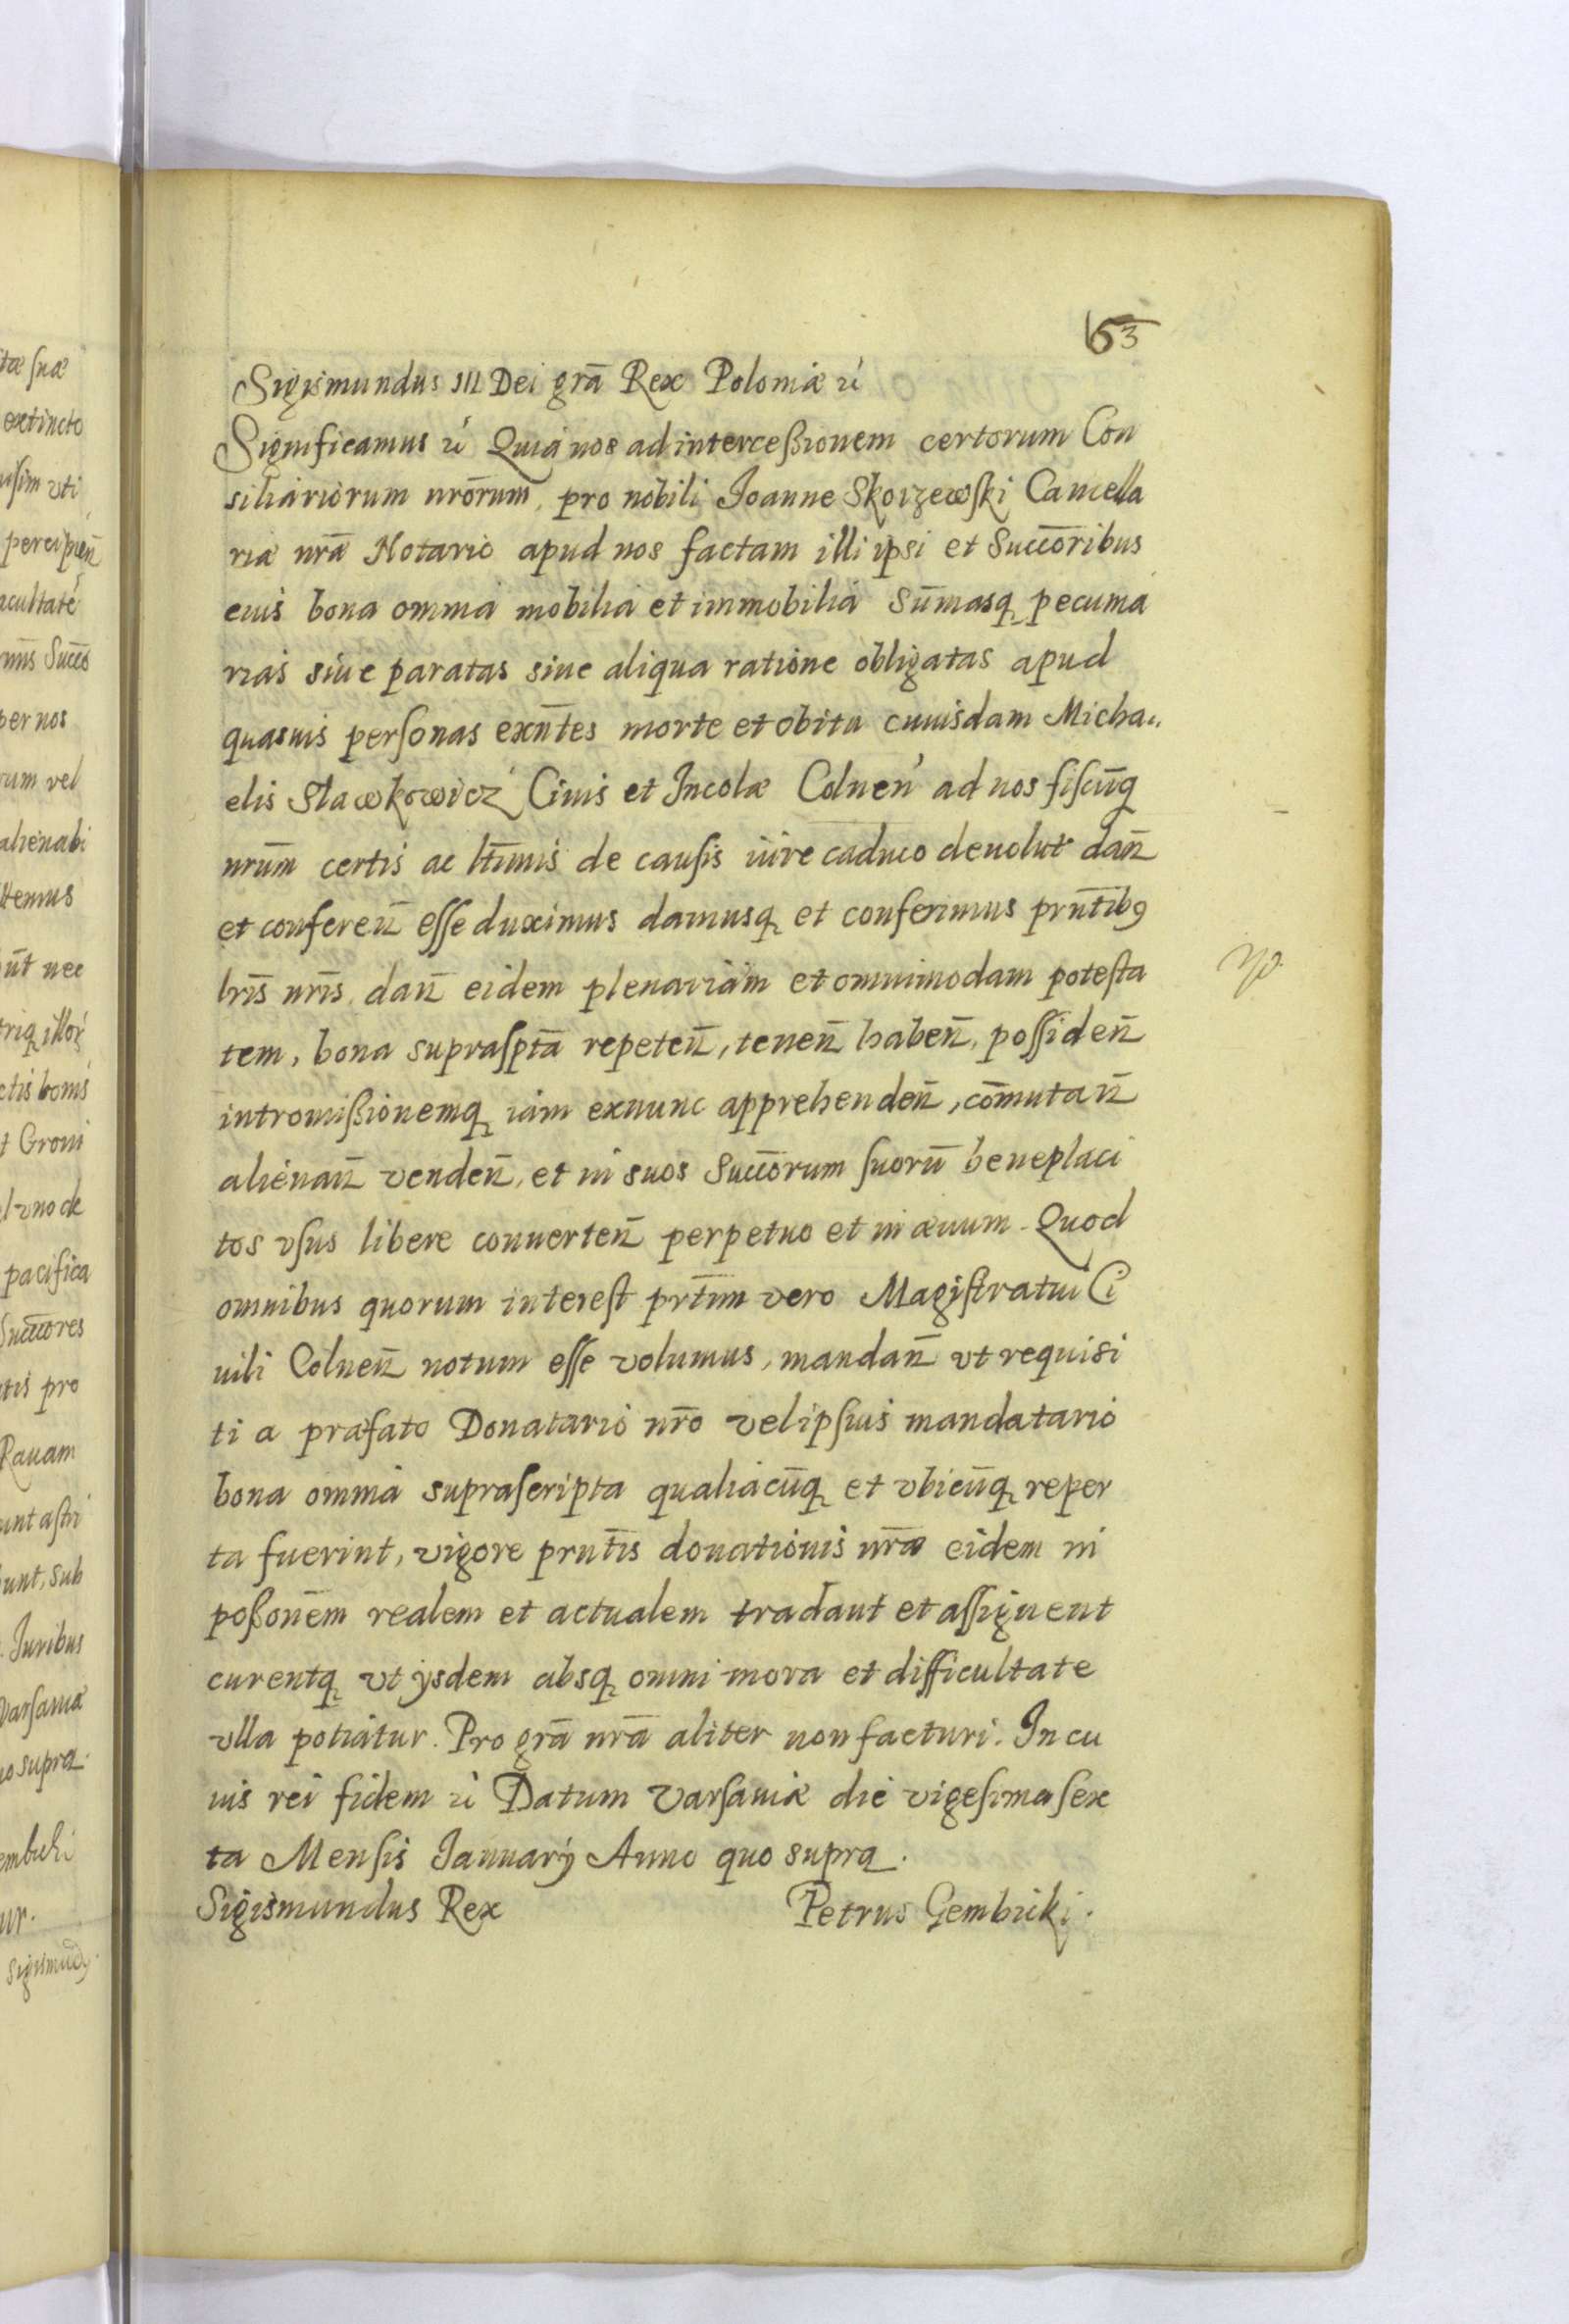 53
Sigismundus III Dei grā Rex Poloniæ etc
Significamus etc Quia nos ad interceßionem certorum Con
siliariorum nr̄orum, pro nobili Joanne Skorzewſki Cancella
riæ nrā Notario apud nos factam illi ipsi et Succōribus
eius bona omnia mobilia et immobilia Sūmasq pecunia
rias siue paratas siue aliqua ratione obligatas apud
quasuis perſonas exn̄tes morte et obitu cuiusdam Micha..
elis Sławkowicz Ciuis et Incolæ Colnen̄ ad nos fiſcūq
nrūm certis ac lt̄imis de cauſis iure caduco deuolut dan̄
et conferen̄ eſſe duximus damusq et conferimus prn̄tibꝰ
lrīs nrīs, dan̄ eidem plenariam et omnimodam poteſta
tem, bona supraſptā repeten̄, tenen̄ haben̄, poſſiden̄
intromißionemq iam exnunc apprehenden̄, cōmutan̄
alienan̄ venden̄, et in suos Succōrum ſuorū beneplaci
tos vſus libere conuerten̄ perpetuo et in æuum. Quod
omnibus quorum intereſt prt̄im vero Magiſtratui Ci
uili Colnen̄ notum eſſe volumus, mandan̄ vt requisi
ti a præfato Donatario nr̄o vel ipſius mandatario
bona omnia supraſcripta qualiacūq et vbicūq reper
ta fuerint, vigore prn̄tis donationis nrǣ eidem in
poßon̄em realem et actualem tradant et aſſignent
curentq vt ijsdem absq omni mora et difficultate
vlla potiatur. Pro grā nrā aliter non facturi. In cu
ius rei fidem etc Datum Varſauiæ die vigeſima ſex
ta Menſis Januarÿ Anno quo supra.
Sigismundus Rex Petrus Gembicki.